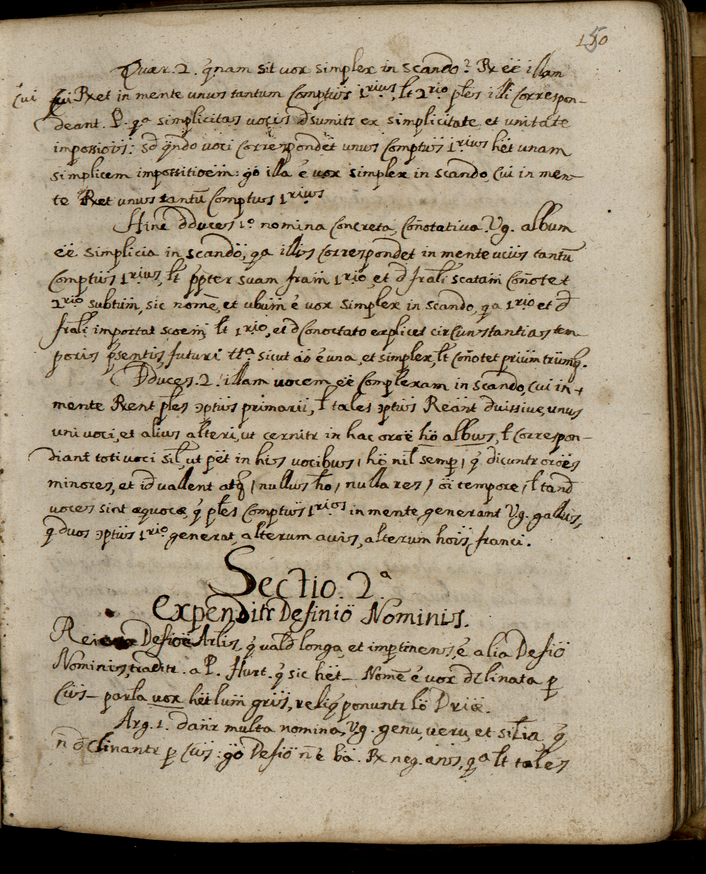 150
Quær. 2. q̃nam sit vox simplex in scando? Rx eē illam
cui Rxet in mente unus tantum Comptus 1rius, lt 2rio ples illi Correspon-
deant. P. qa simplicitas vocis dsumitr ex simplicitate et unitate
impossiois: sd qndo voci Correspondet unus Comptus 1rius hēt unam
simplicem impositioem: go illa ē vox simplex in scando, Cui in men-
te Rxet unus tantū Comptus 1rius
Hinc dduces 1o nomina Concreta Coñotativa. Vg. album
eē simplicia in scandō, qa illis Correspondet in mente unus tantū
Comptus 1rius, lt ppter suam fram 1rio, et d frali scatam Coñotet
2rio subtum, sic nomē, et ubum ē vox simplex in scando, qa 1rio et d
frali importat scoem lt 1rio, et d Conortato explicet circunstantias tem
poris psentis, futuri tta sicut ao ē una, et simplex, lt coñotet prium trũmq.
Dduces. 2. illam vocem eē Complexam in scando, Cui in
mente Rxent ples ɔptus primarii, l tales ɔptus Rxeant divisive, unus
uni voci, et alius alteri, ut cernitr in hac oroē hō albus, l Correspon-
diant toti voci sil, ut pēt in his vocibus, hō nil semp, q dicuntr oroēs
minores, et id vallent atq, nullus ho, nulla res, oi tempore, l tand
voces sint æquocæ, q ples Comptus 1rios in mente generant Vg. gallus,
q duos ɔptus 1rio generat, alterum avis, alterum hois franci.
Sectio. 2.a
Expenditr Definiō Nominis.
Defioē Arlis, q vald longa, et impertinens, ē alia Defiō
Nominis, traditr. a P. Hurt. q sic hēt_ Nomē ē vox dclinata p
Cus_ parla vox hēt lum gris, reliq ponuntr lo Driæ.
Arg. 1. dantr multa nomina, Vg. genu, veru, et silia q
n dclinantr p Cus: go Defiō ñ ē bā. Rx neg. ans, qa lt tales